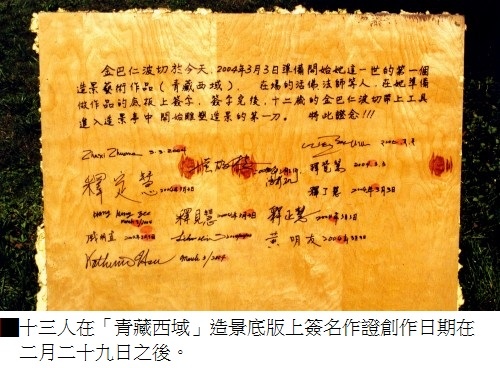 金巴仁波切於今天，2004年3月3日準備開始她這一世的第一個
造景藝術作品(青藏西域)， 在場的活佛法師等人，在她準備
做作品的底板上簽字， 簽字完後，十二歲的金巴仁波切帶上工具
進入造景亭中 開始雕塑造景的第一刀。 將此證念!!!
Zhaxi Zhuoma 3.3.2004
釋覺慧 2004.3.3
釋定慧 2004年3月3日
釋了慧 2004年3月3日
釋見慧 2004年3月3日 釋正慧 2004年3月3日
黃明友 2004年3月3日
March 3/2004
十三人在「青藏西域」造景底版上簽名作證創作日期在
二月二十九日之後。